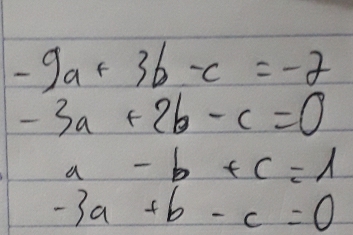 -9a + 3b - c = -7
-3a + 2b - c = 0
a - b + c = 1
-3a + b - c = 0